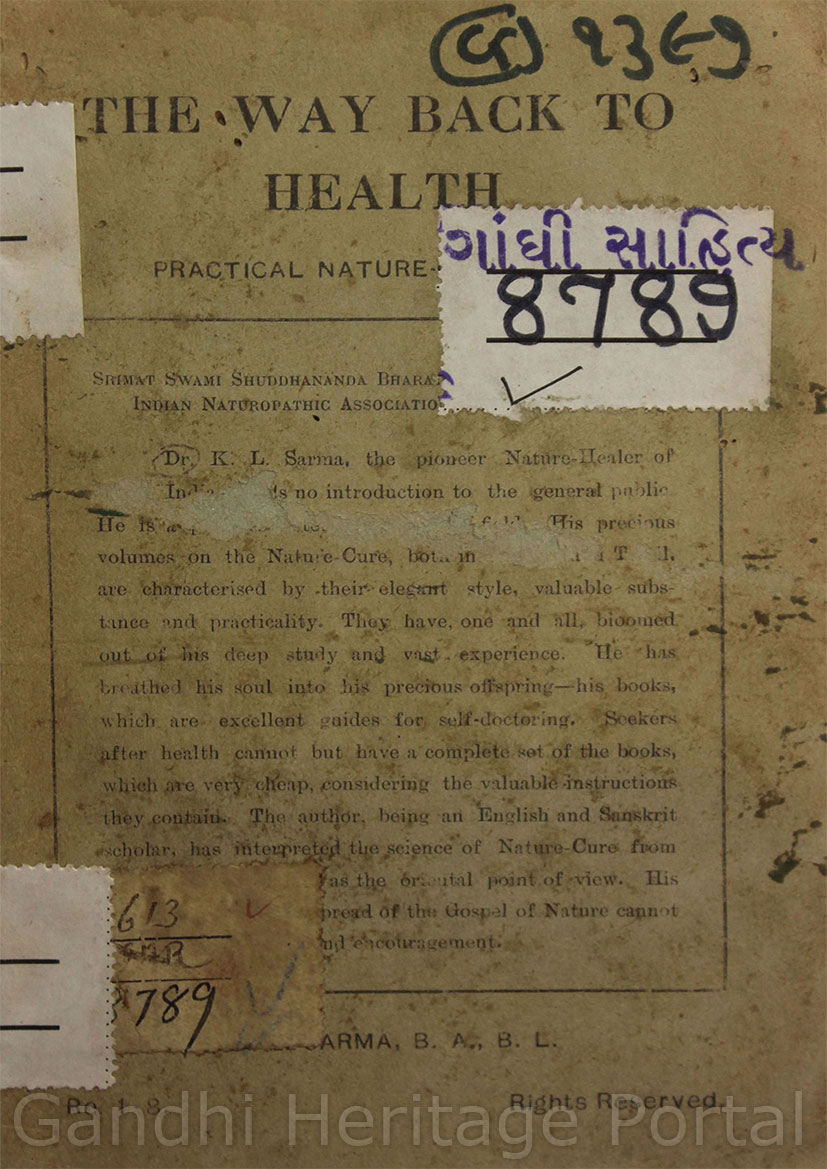 ૧૩૯૭
THE WAY BACK TO
HEALTH
PRACTICAL NATURE-
ગાંધી સાહિત્ય
8789
SRIMAT SWAMI SHUDDHANANDA BHARA
INDIAN NATUROPATHIC ASSOCIATIO
Dr. K. L. Sarma, the pioneer Nature-Healer of
is no introduction to the general public
He is His precious
volumes on the Nature-Cure, both in
are characterised by their elegant style, valuable subs-
tance and practicality. They have, one and all, bloomed
out of his deep study and vast experience. He has
breathed his soul into his precious offspring—his books,
which are excellent guides for self-doctoring. Seekers
after health cannot but have a complete set of the books,
which are very cheap, considering the valuable instructions
they contain. The author, being an English and Sanskrit
scholar, has interpreted the science of Nature-Cure from
as the oriental point of view. His
613
pread of the Gospel of Nature cannot
nd encouragement.
789
ARMA, B. A., B. L.
Re. 1 8 Rights Reserved.
Gandhi Heritage Portal